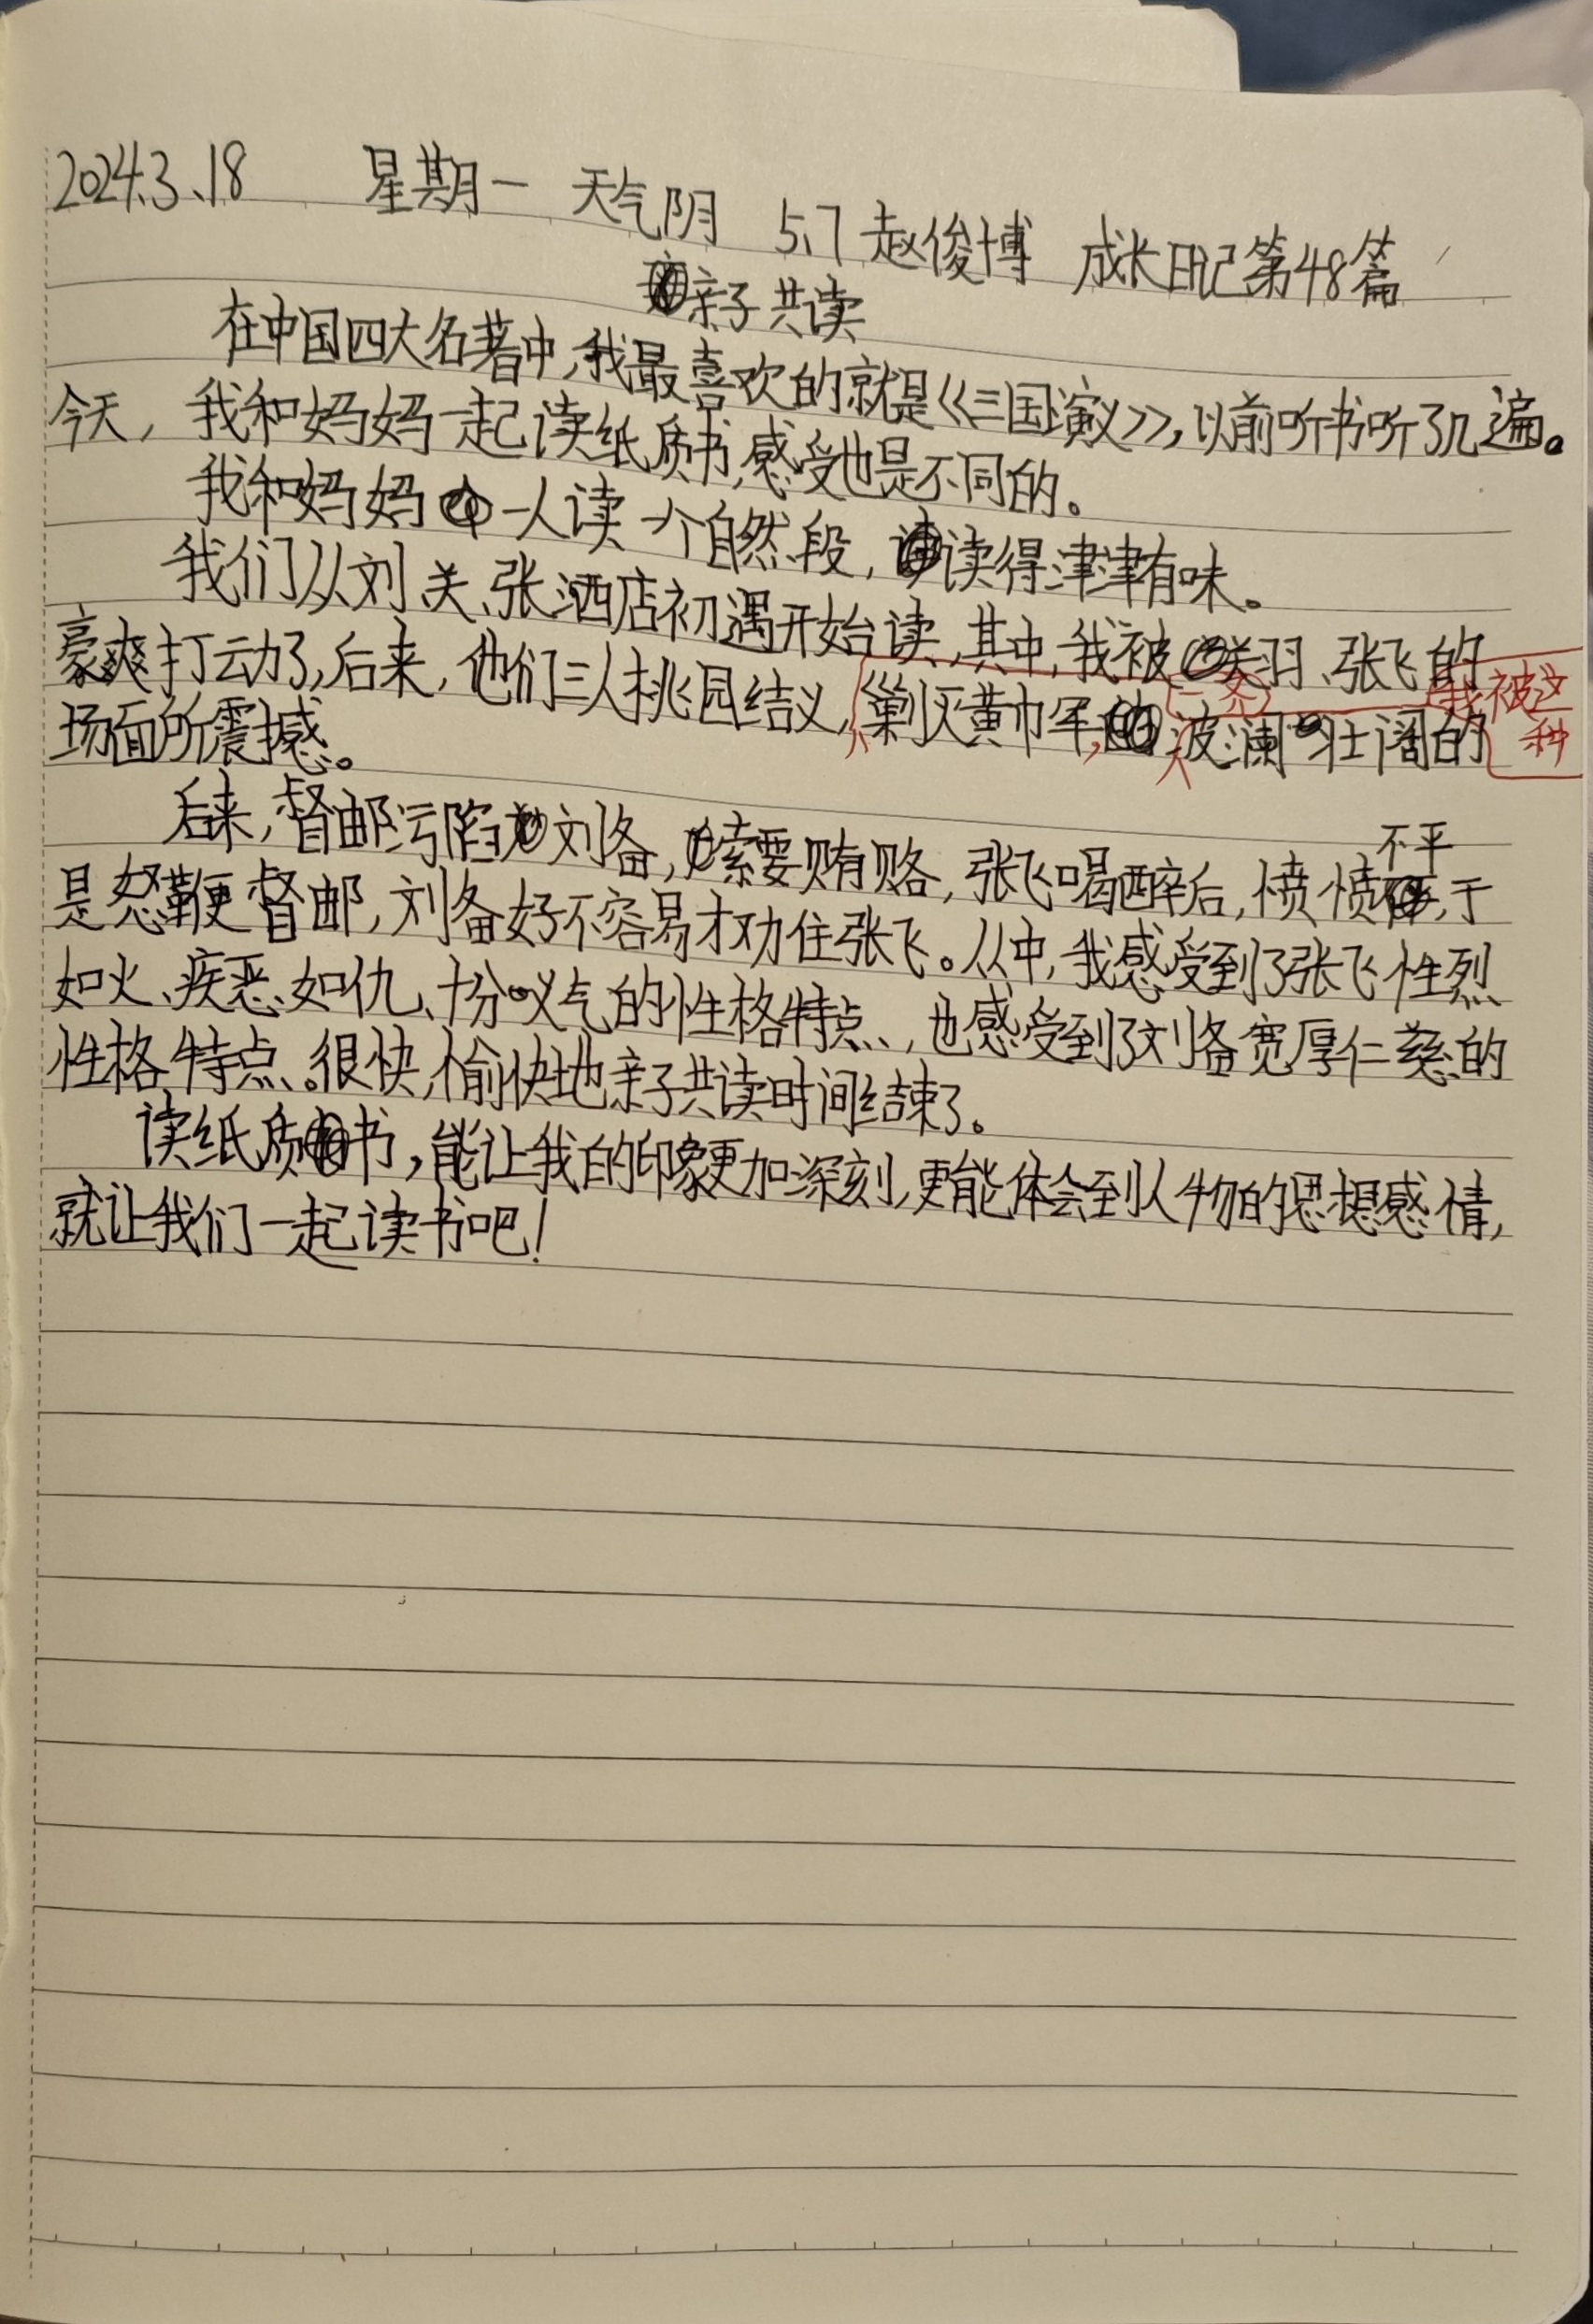 2024.3.18 星期一 天气阴 5.7 赵俊博 成长日记第48篇
亲子共读
在中国四大名著中,我最喜欢的就是《三国演义》,以前听书听了几遍。
今天,我和妈妈一起读纸质书,感受也是不同的。
我和妈妈一人读一个自然段,读得津津有味。
我们从刘、关、张洒店初遇开始读,其中,我被关羽、张飞的
豪爽打动了,后来,他们三人桃园结义,剿灭黄巾军,波澜壮阔的
我被这种
场面所震撼。
后来,督邮污陷刘备,索要贿赂,张飞喝醉后,愤愤不平,于
是怒鞭督邮,刘备好不容易才劝住张飞。从中,我感受到了张飞性烈
如火、疾恶如仇、十分义气的性格特点,也感受到了刘备宽厚仁慈的
性格特点。很快,愉快地亲子共读时间结束了。
读纸质书,能让我的印象更加深刻,更能体会到人物的思想感情,
就让我们一起读书吧!